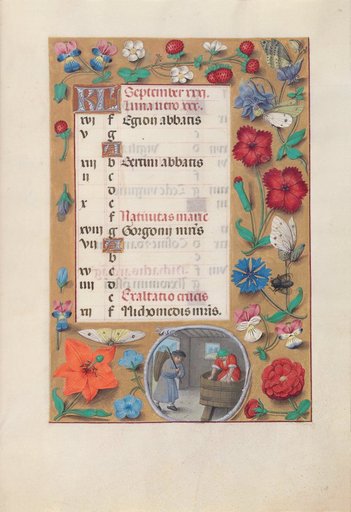 KL September xxx.
Luna vero xxx.
xvi f Egion abbatis
v g
A
xiii b Bertini abbatis
ii c
d
x e
f Natiuitas marie
xviii g Gorgonii m̄ris
vii A
b
xv c
iiii d
e Exaltatio crucis
xii f Nichomedis m̄ris.